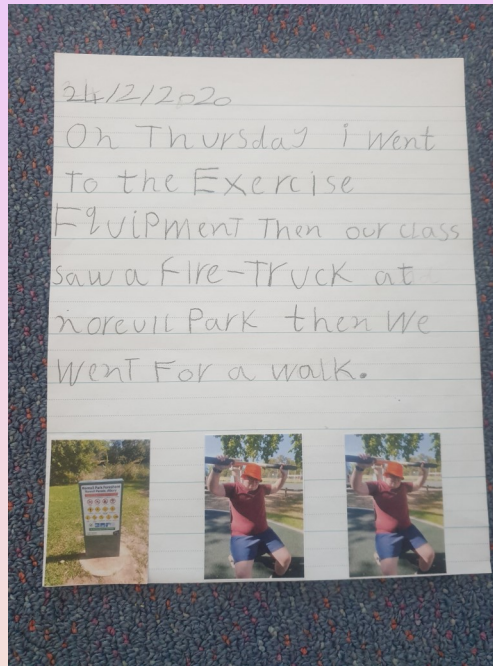 24/2/2020
On Thursday i went
To the Exercise
EquiPment Then our class
saw a Fire-Truck at
noreuil Park then We
WenT For a walk.